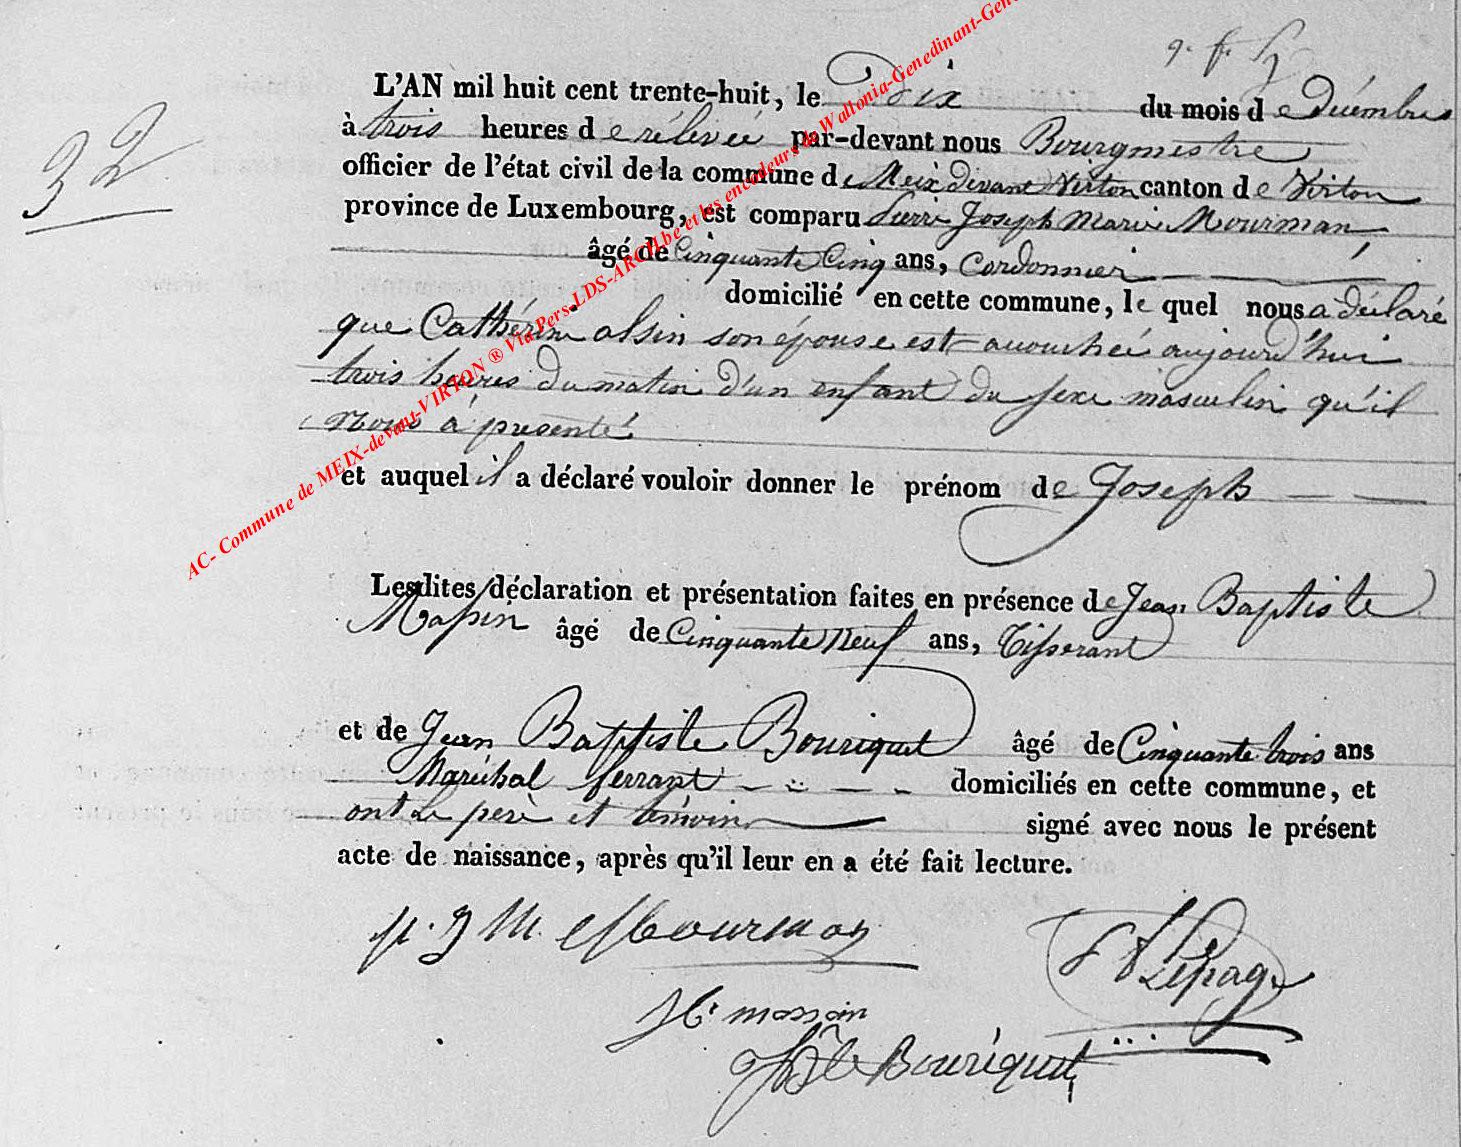 32
L'AN mil huit cent trente-huit, le Dix du mois de Décembre
à trois heures de rélévée par-devant nous Bourgmestre
officier de l'état civil de la commune de Meix devant Virton canton de Virton
province de Luxembourg, est comparu Pierre Joseph Marie Mourman,
âgé de Cinquante Cinq ans, Cordonnier
domicilié en cette commune, le quel nous a déclaré
que Cathérine alsin son épouse est accouchée aujourd'hui
trois heures du matin d'un enfant du sexe masculin qu'il
nous à présenté
et auquel il a déclaré vouloir donner le prénom de Joseph
Lesdites déclaration et présentation faites en présence de Jean Baptiste
Massin âgé de Cinquante Neuf ans, Tisserant
et de Jean Baptiste Bouriquet âgé de Cinquante trois ans
Maréchal ferrant domiciliés en cette commune, et
ont Le père et témoins signé avec nous le présent
acte de naissance, après qu'il leur en a été fait lecture.
p. J M. Mourman
Lepage
massin
Bouriquet
AC- Commune de MEIX-devant-VIRTON ® Via Pers-LDS-ARCH.be et les encodeurs de Wallonia-Genedinant-Gene